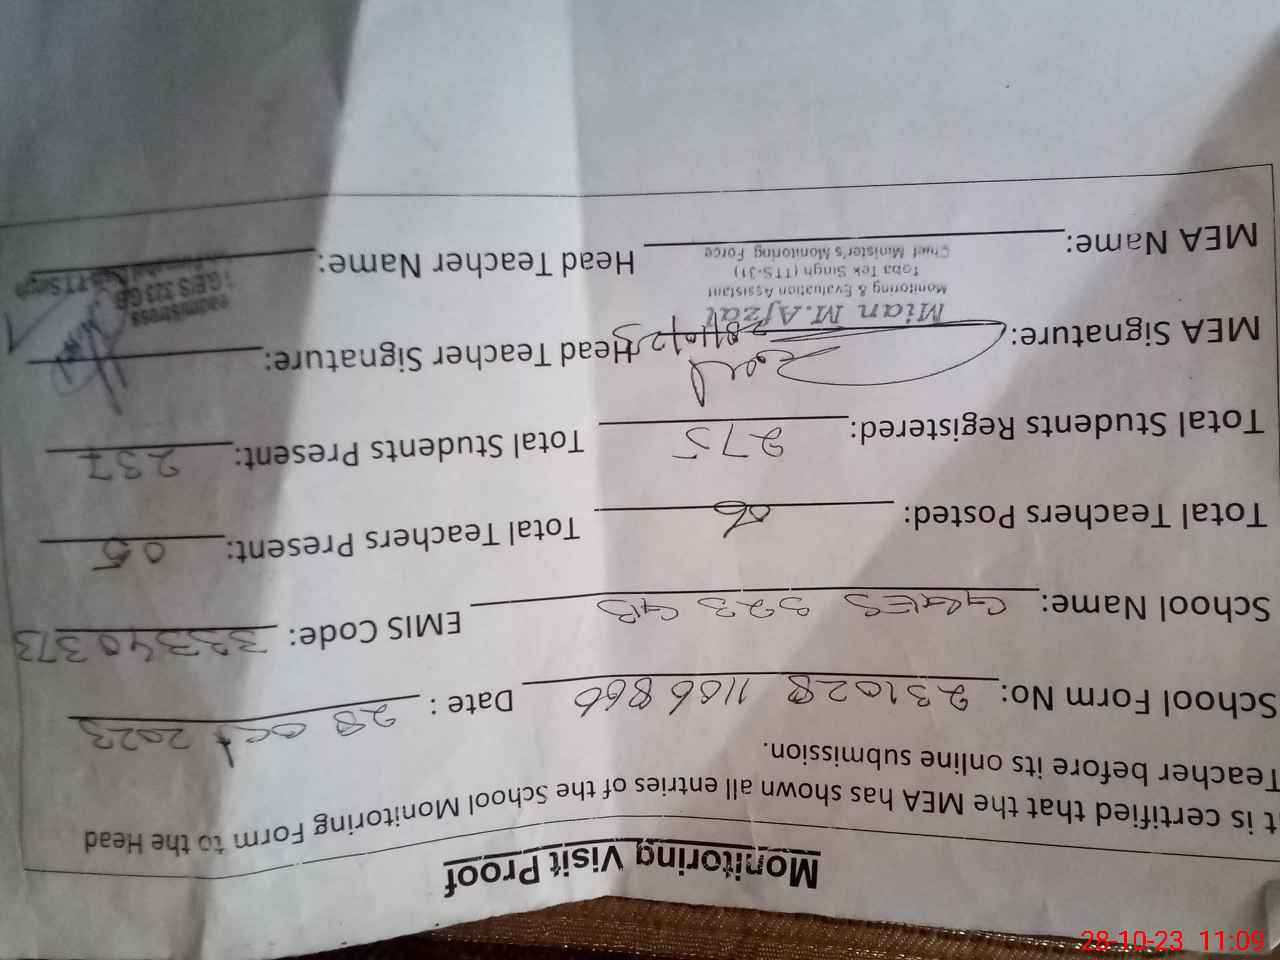 Monitoring Visit Proof
It is certified that the MEA has shown all entries of the School Monitoring Form to the Head
Teacher before its online submission.
School Form No: 231028 1106866 Date : 28 oct 2023
School Name: GGES 323 GB EMIS Code: 33340373
Total Teachers Posted: 06 Total Teachers Present: 05
Total Students Registered: 275 Total Students Present: 237
MEA Signature: 28/10/23 Head Teacher Signature:
Mian M.Afzal
Monitoring & Evaluation Assistant
Toba Tek Singh (TTS-31)
Chief Minister's Monitoring Force
eadmistress
GE/S 323 GB
T.T Singh
MEA Name: Head Teacher Name:
28-10-23 11:09